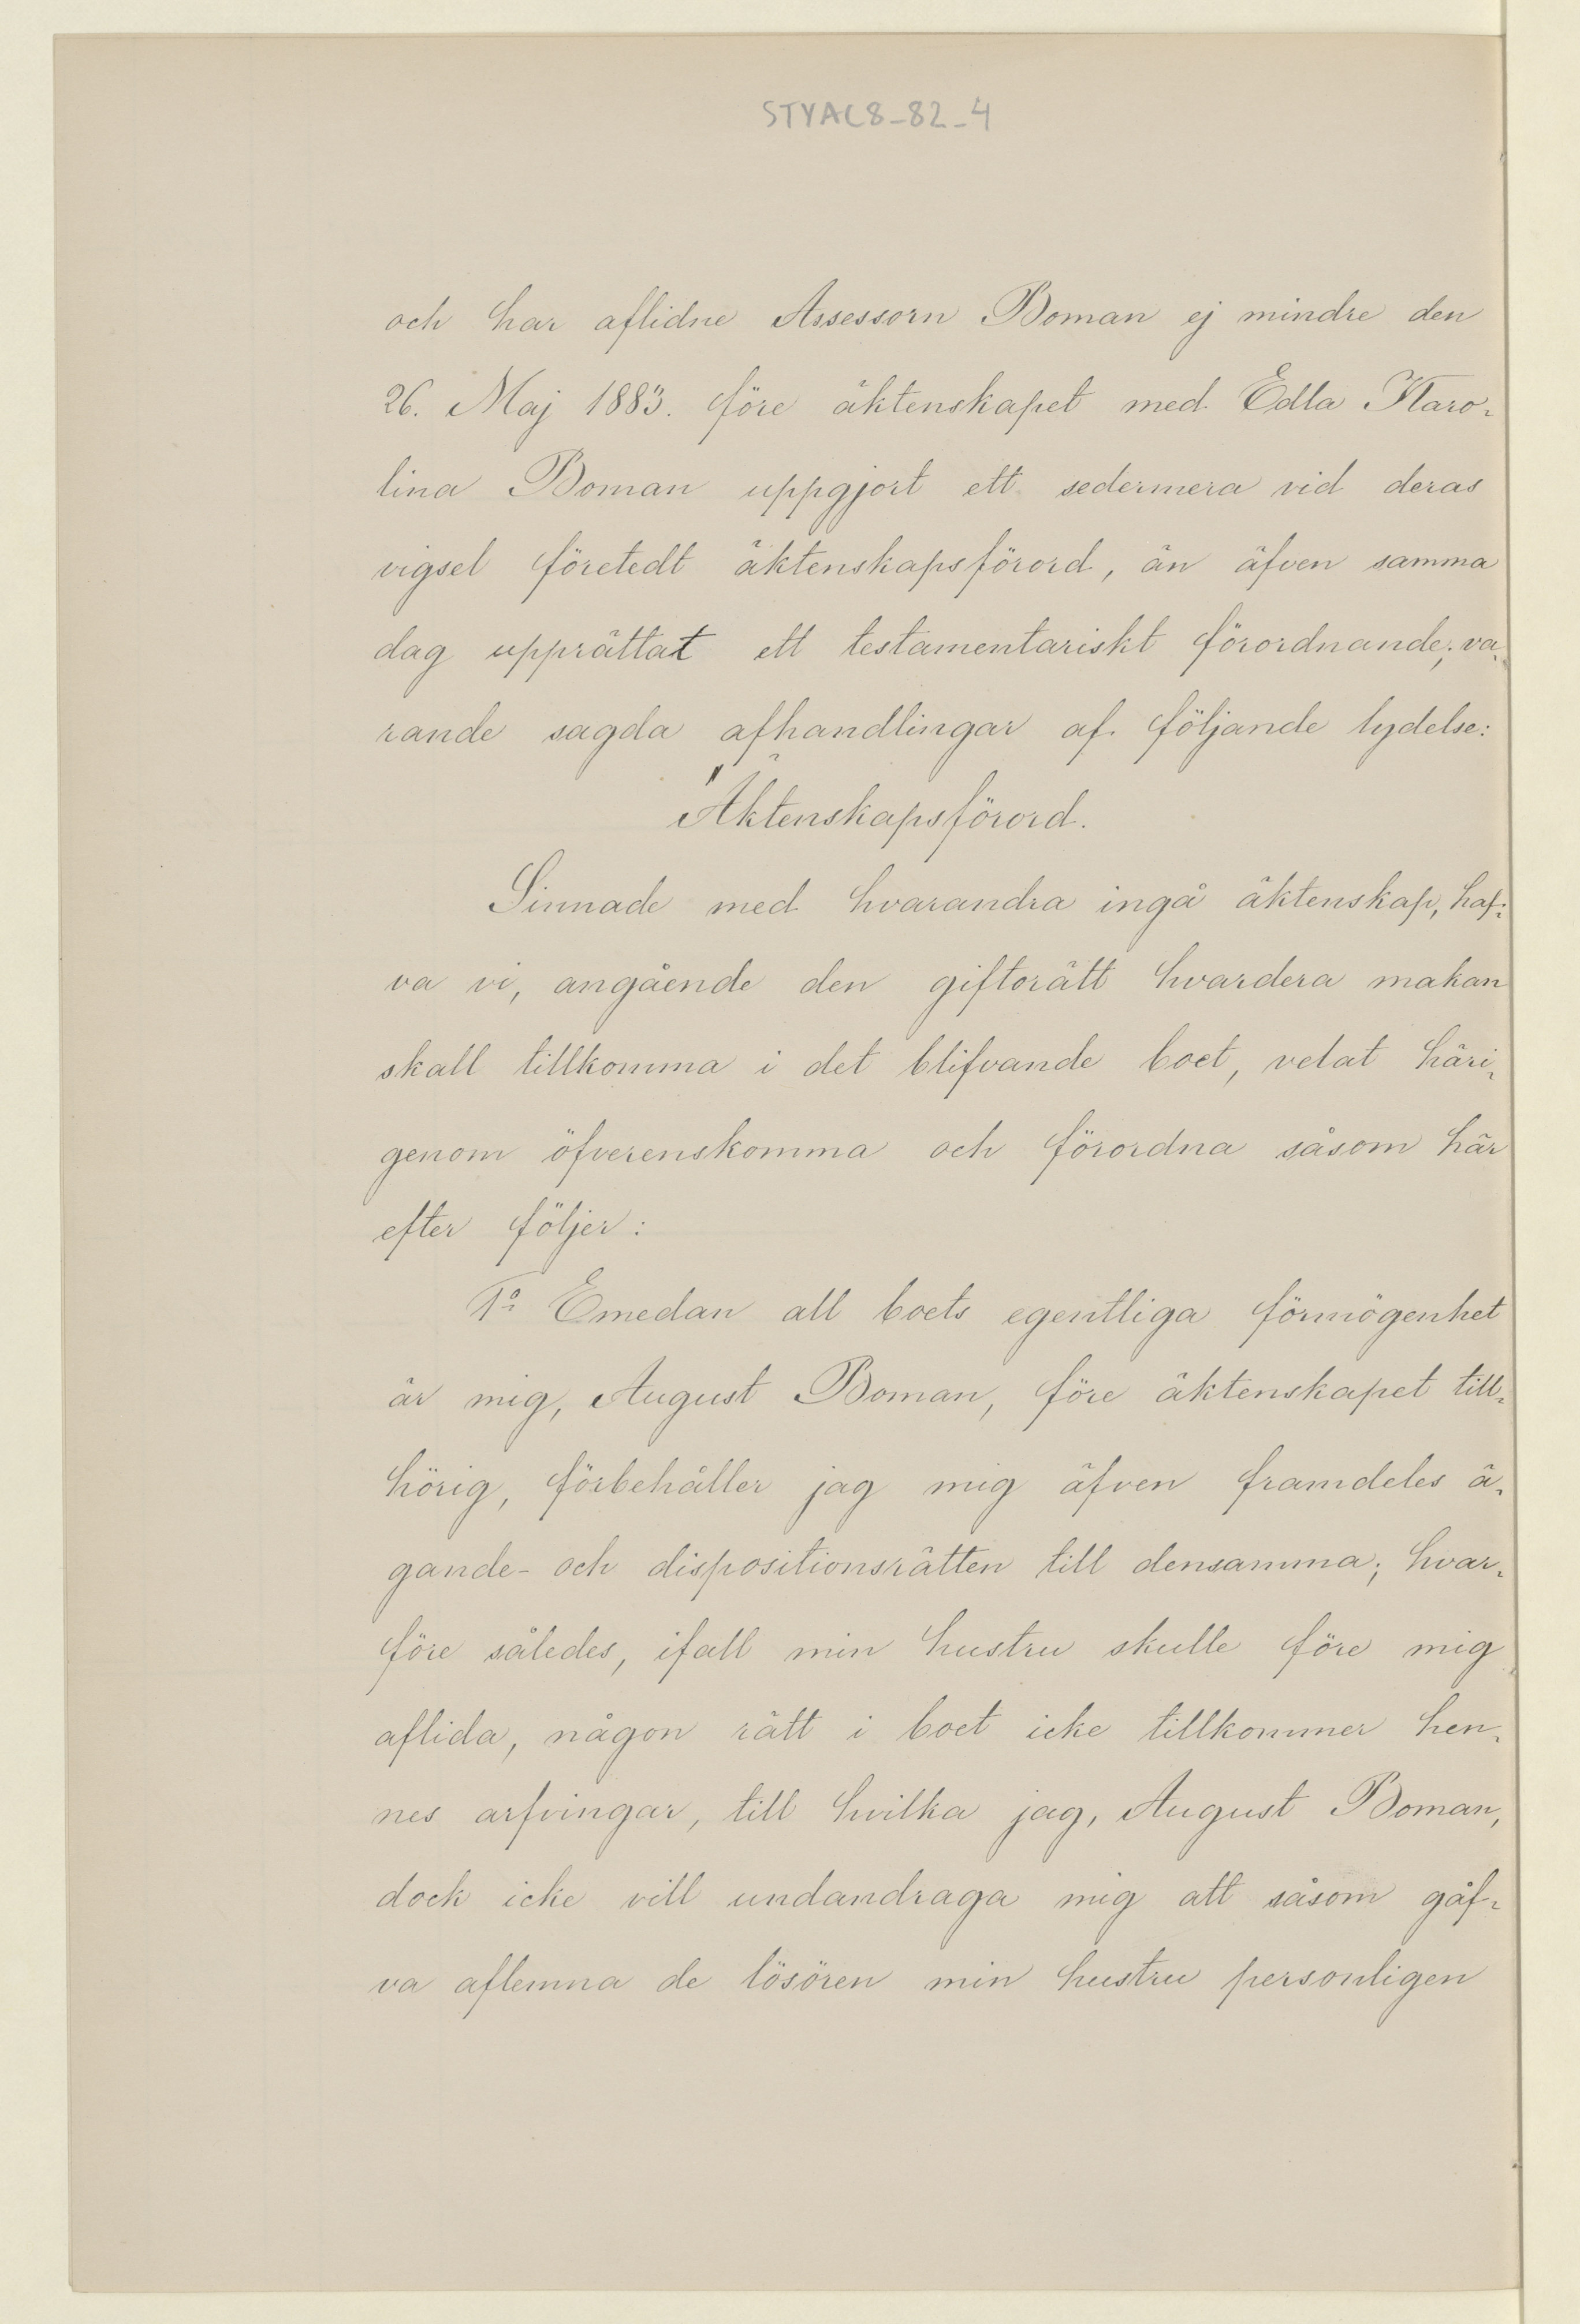 STYAC8_82_4
och har aflidne Assessorn Boman ej mindre den
26. Maj 1883. före äktenskapet med Edla Karo-
lina Boman uppgjort ett sedermera vid deras
vigsel företedt äktenskapsförord, än äfven samma
dag upprättat ett testamentariskt förordnande; va-
rande sagda afhandlingar af följande lydelse:
"Äktenskapsförord.
Sinnade med hvarandra ingå äktenskap, haf-
va vi, angående den giftorätt hvardera makan
skall tillkomma i det blifvande boet, velat häri-
genom öfverenskomma och förordna såsom här
efter följer:
1º Emedan all boets egentliga förmögenhet
är mig, August Boman, före äktenskapet till-
hörig, förbehåller jag mig äfven framdeles ä-
gande- och dispositionsrätten till densamma; hvar-
före således, ifall min hustru skulle före mig
aflida, någon rätt i boet icke tillkommer hen-
nes arfvingar, till hvilka jag, August Boman,
dock icke vill undandraga mig att såsom gåf-
va aflemna de lösören min hustru personligen